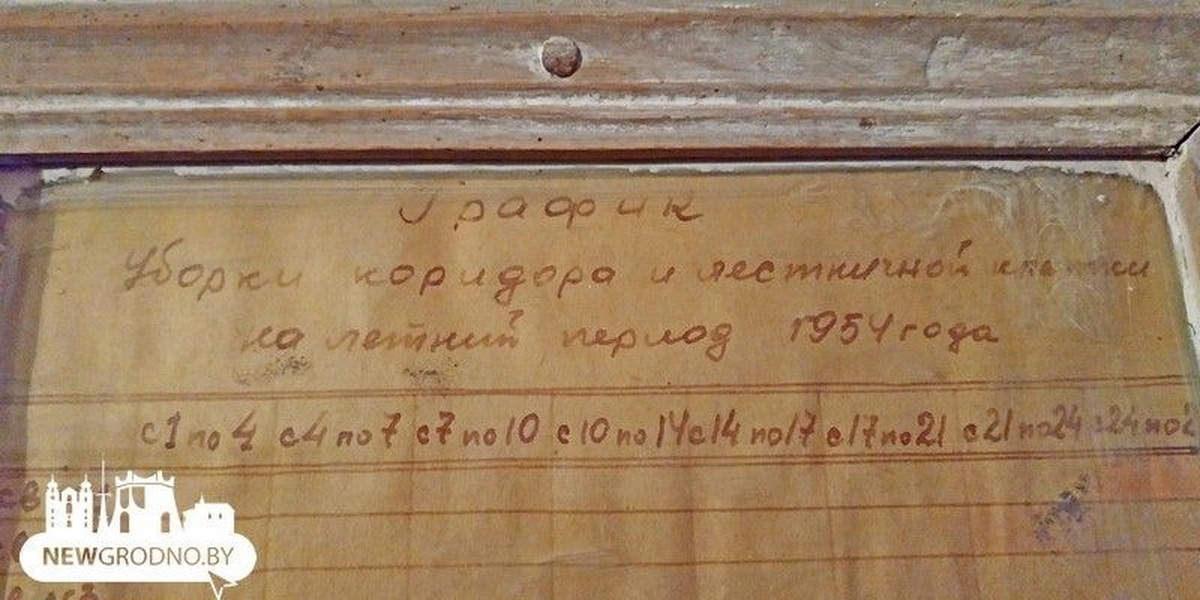 График
Уборки коридора и лестничной клетки
на летний период 1954 года
с 1 по 4 с 4 по 7 с 7 по 10 с 10 по 14 с 14 по 17 с 17 по 21 с 21 по 24 с 24 по
NEWGRODNO.BY